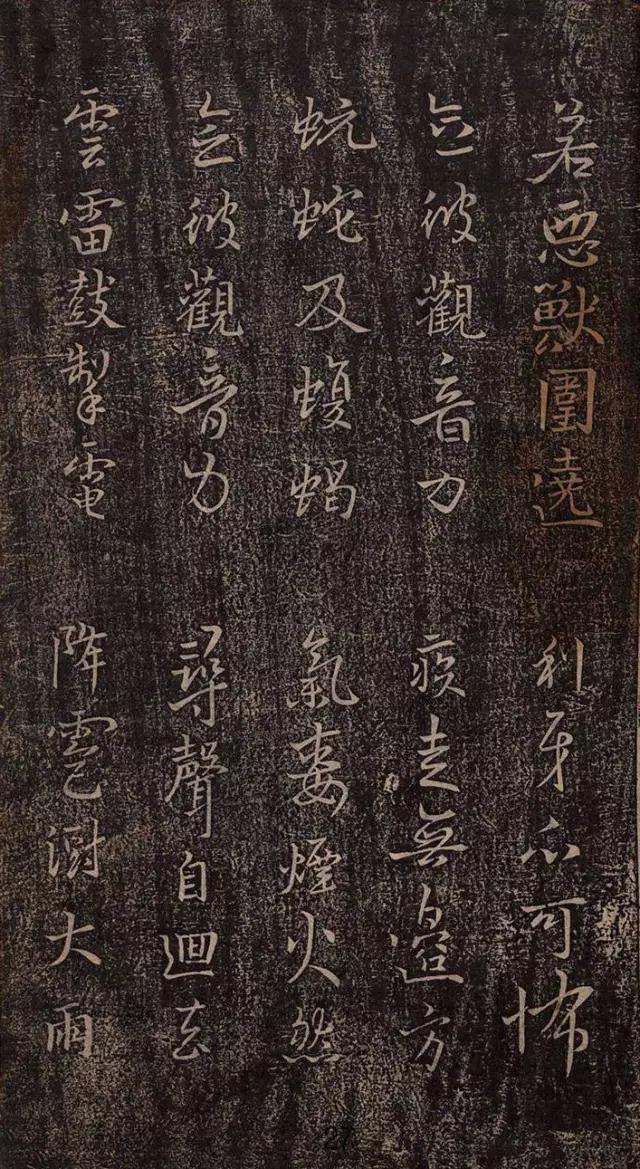 若惡獸圍遶 利牙爪可怖
念彼觀音力 疾走無邊方
蚖蛇及蝮蝎 氣毒煙火然
念彼觀音力 尋聲自迴去
雲雷鼓掣電 降雹澍大雨
27